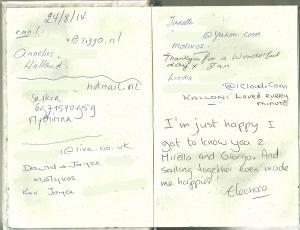 24/8/14
email:
@ziggo.nl
Annelies
Holland.
hotmail.nl
6571540659
@live.co.uk
David & Joyce
Molyvos
Kev Joyce
@yahoo.com
Molivos.
Thankyou for a Wonderful
day & Jan
Linda
@icloud.com
KALLONI Loved every
minute
I'm just happy I
got to know you 2
Mirella and Giorgo. And
sailing together even made
me happier!